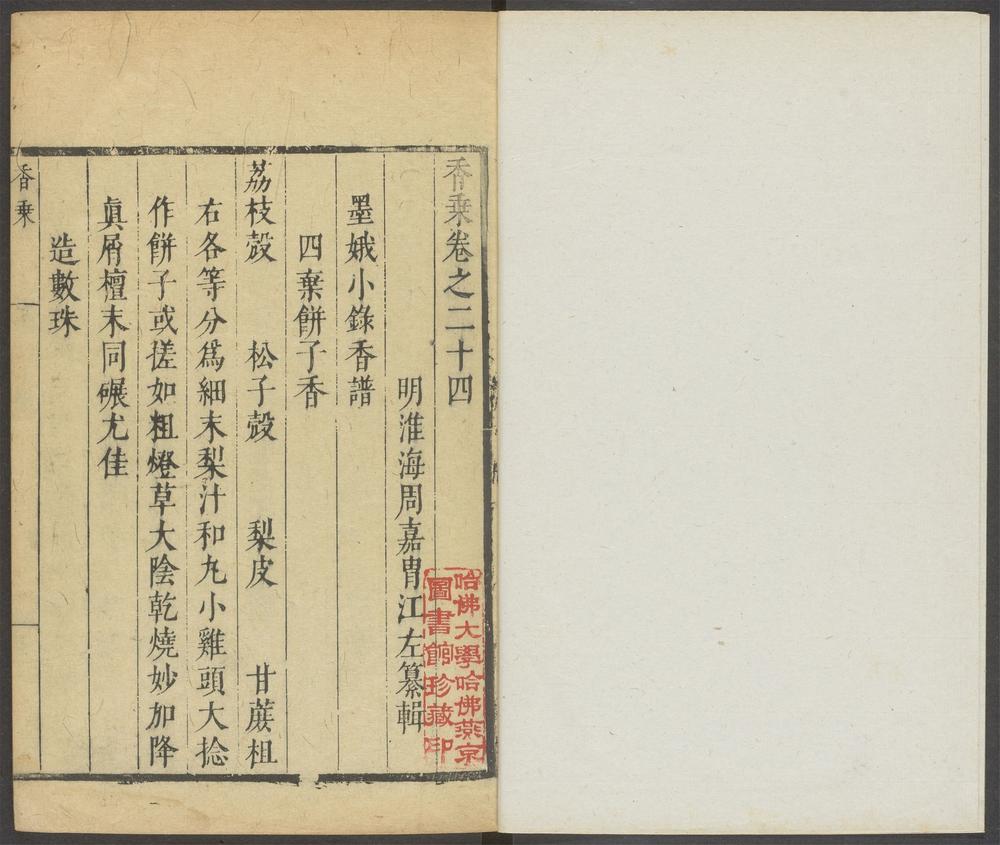 香乗卷之二十四
明淮海周嘉胄江左纂輯
墨娥小錄香譜
四棄餅子香
荔枝殼 松子殼 梨皮 甘蔗柤
右各等分爲細末梨汁和丸小雞頭大捻
作餅子或搓如粗燈草大陰乾燒妙加降
眞屑檀末同碾尤佳
造數珠
香乗
哈佛大學哈佛燕京
圖書館珍藏印